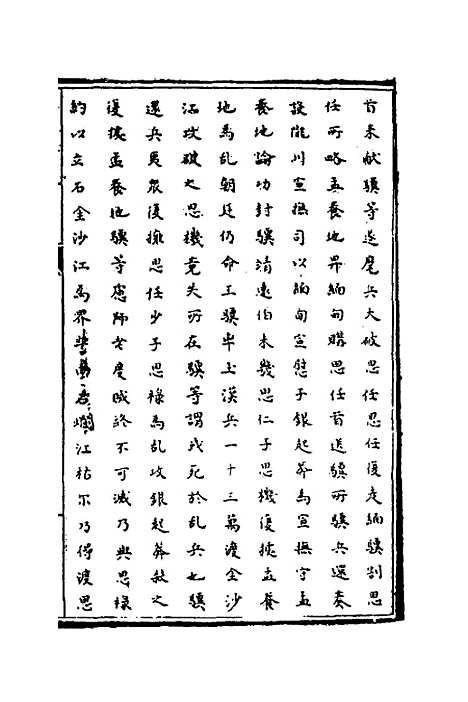 首来献驥等遂麾兵大破思任思任復走緬驥割思
任所略孟養地畀緬甸購思任首送驥所驥兵還奏
設隴川宣撫司以緬甸宣慰子銀起莽為宣撫守孟
養地論功封驥清遠伯未幾思仁子思機復據孟養
地為乱朝廷仍命王驥率土漢兵一十三萬渡金沙
江攻破之思機竟失所在驥等謂或死於乱兵也驥
還兵夷眾復擁思任少子思祿為乱攻銀起莽敗之
復據孟養地驥等慮師老度賊終不可滅乃與思祿
約以立石金沙江為界誓曰石爛江枯尔乃得渡思